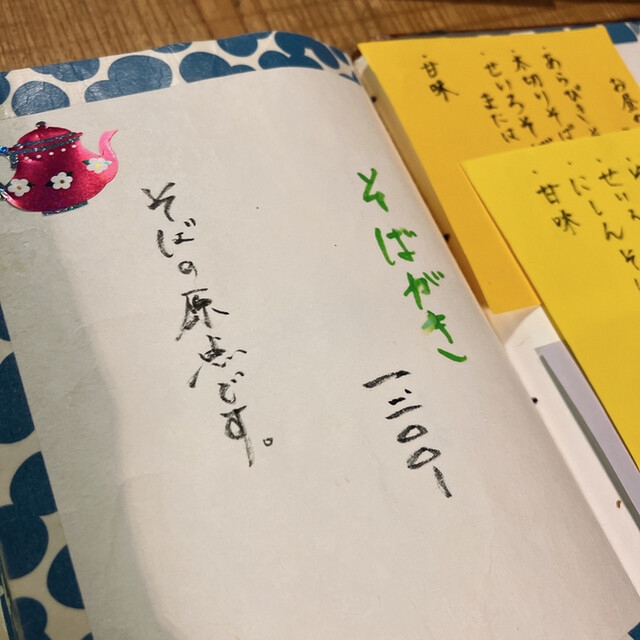 あらびき
太切りそば
せいろそ
または
甘味
せいろ
にしんそ
甘味
そばがき
一二〇〇-
そばの原点です。